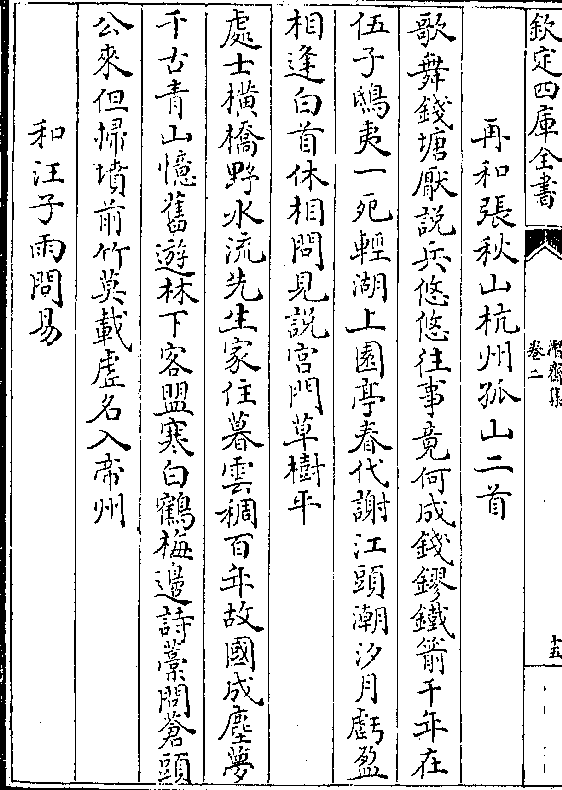 欽定四庫全書
潛齋集
卷二
十五
再和張秋山杭州孤山二首
歌舞錢塘厭説兵悠悠往事竟何成錢鏐鐵箭千年在
伍子鴟夷一死輕湖上園亭春代謝江頭潮汐月虧盈
相逢白首休相問見説宮門草樹平
處士橫橋野水流先生家住暮雲稠百年故國成塵夢
千古青山憶舊遊林下客盟寒白鶴梅邊詩藁問蒼頭
公來但掃墳前竹莫載虛名入帝州
和汪子雨問易